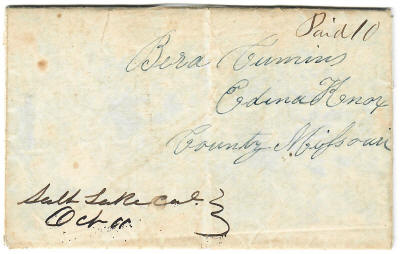 Paid 10
Bera Tumins
Edina Knox
County Missouri
Salt Lake Cal.
Oct 11